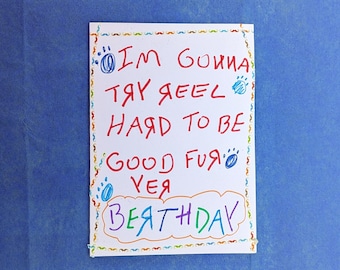 I'M GONNA
TRY REEL
HARD TO BE
GOOD FUR
YER
BERTHDAY